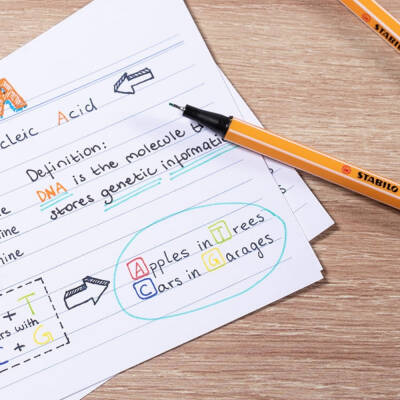 Acid
Definition:
DNA is the molecule
stores genetic
Apples in Trees
Cars in Garages
+ T
with
+ G
STABILO
STABILO